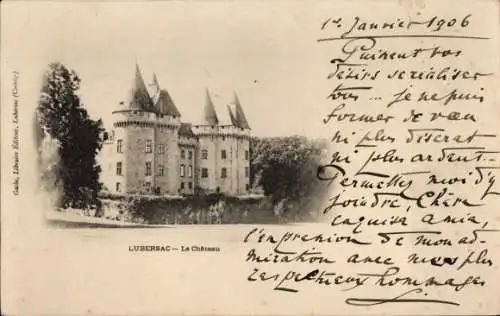 Gade, Libraire Editeur, Lubersac (Corrèze)
LUBERSAC — Le Château
1er Janvier 1906
Puissent vos
désirs se réaliser
tous... je ne puis
former de vœu
ni plus discret
ni plus ardent...
Permettez moi d'y
joindre, Chère
exquise amie,
l'expression de mon ad-
miration avec mes plus
respectueux hommages